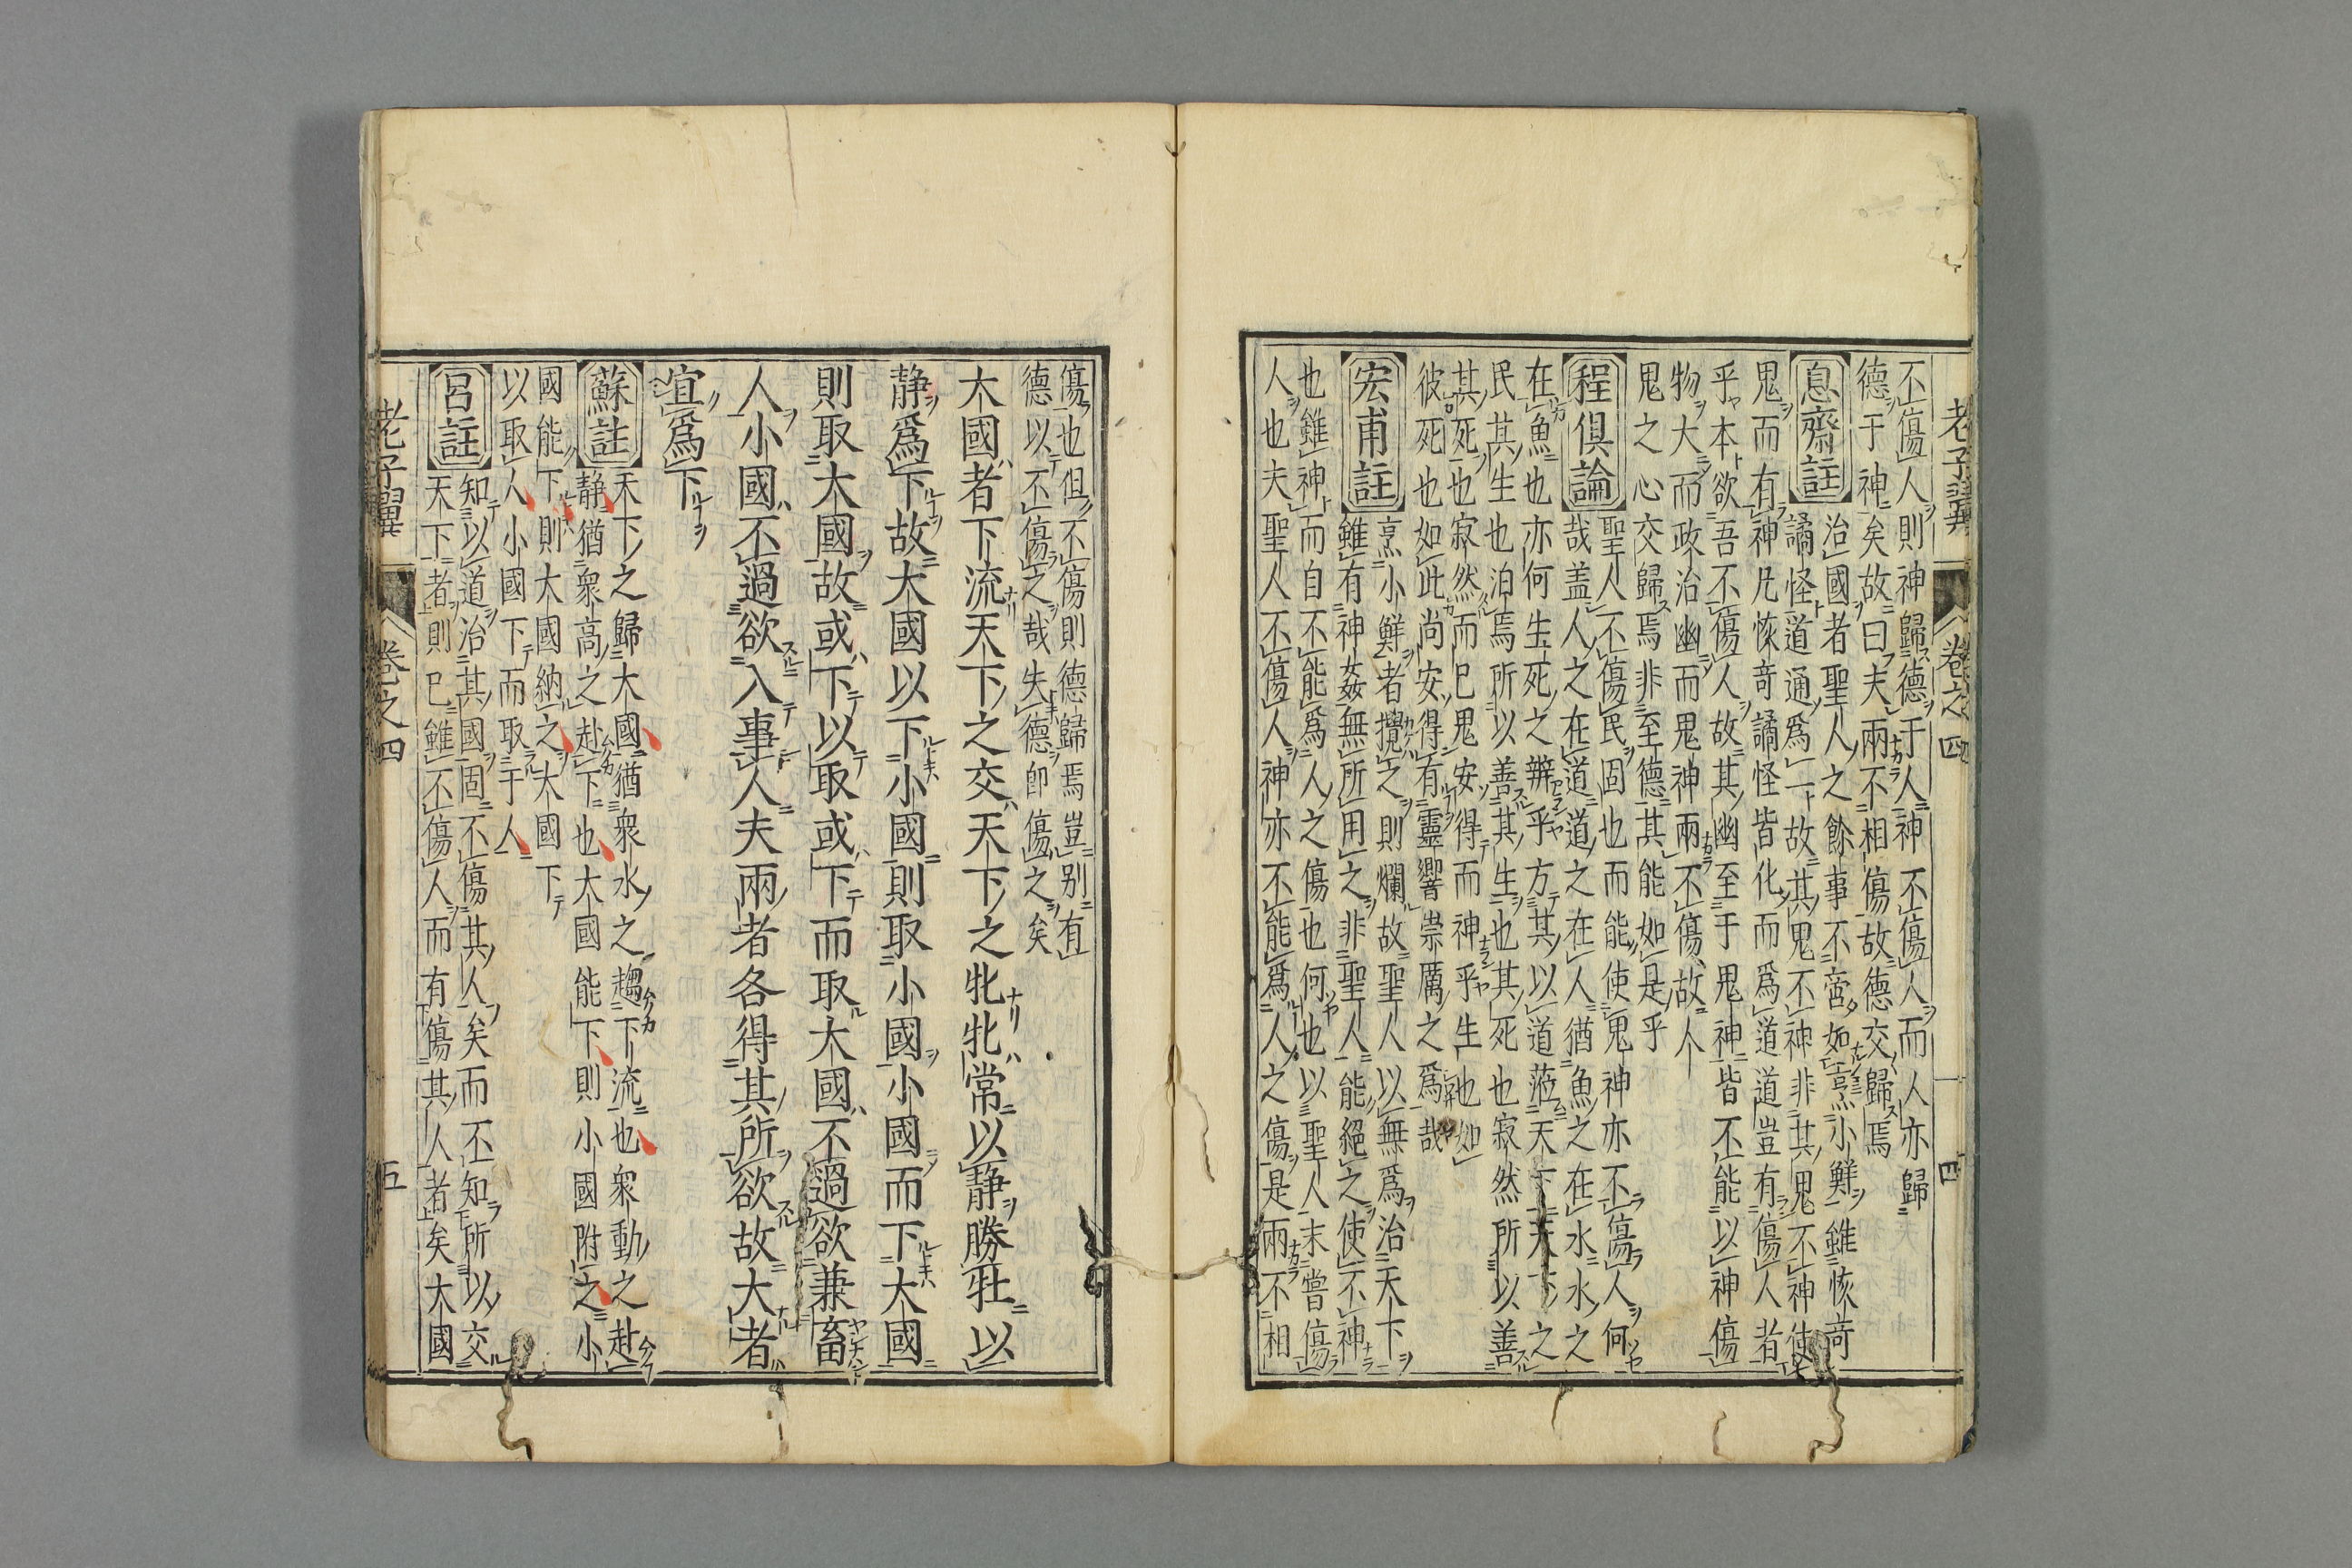 老子翼 卷之四 四
不傷人則神歸德于人神不傷人而人亦歸
德于神矣故曰夫兩不相傷故德交歸焉
息齋註
治國者聖人之餘事不啻如烹小鮮雖恢奇
譎怪道通爲一故其鬼不神非其鬼不神使
鬼而有神凡恢奇譎怪皆化而爲道道豈有傷人者
乎本欲吾不傷人故其幽至于鬼神皆不能以神傷
物大而政治幽而鬼神兩不傷故人
鬼之心交歸焉非至德其能如是乎
程俱論
聖人不傷民固也而能使鬼神亦不傷人何
哉盖人之在道道之在人猶魚之在水水之
在魚也亦何生死之辨乎方其以道蒞天下天下之
民其生也泊焉所以善其生也其死也寂然所以善
其死也寂然而已鬼安得而神乎生也如
彼死也如此尚安得有靈響崇厲之爲哉
宏甫註
烹小鮮者攪之則爛故聖人以無爲治天下
雖有神姦無所用之非聖人能絕之使不神
也雖神而自不能爲人之傷也何也以聖人未嘗傷
人也夫聖人不傷人神亦不能爲人之傷是兩不相
傷也但不傷則德歸焉豈別有
德以不傷之哉失德卽傷之矣
大國者下流天下之交天下之牝牝常以靜勝牡以
靜爲下故大國以下小國則取小國小國而下大國
則取大國故或下以取或下而取大國不過欲兼畜
人小國不過欲入事人夫兩者各得其所欲故大者
宜爲下
蘇註
天下之歸大國猶衆水之趨下流也衆動之赴
靜猶衆高之赴下也大國能下則小國附之小
國能下則大國納之大國下
以取人小國下而取于人
呂註
知以道治其國固不傷其人矣而不知所以交
天下者則已雖不傷人而有傷其人者矣大國
老子翼 卷之四 五